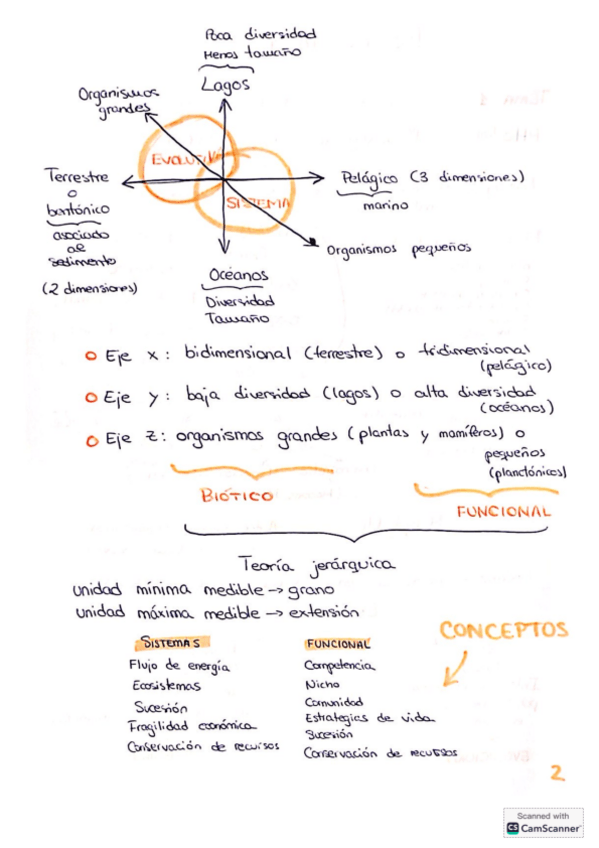 Poca diversidad
Menos tamaño
Lagos
Organismos
grandes
EVOLUTIVA
Terrestre
o
bentónico
asociado
al
sedimento
(2 dimensiones)
SISTEMA
Pelágico (3 dimensiones)
marino
Organismos pequeños
Océanos
Diversidad
Tamaño
Eje x: bidimensional (terrestre) o tridimensional
(pelágico)
Eje y: baja diversidad (lagos) o alta diversidad
(océanos)
Eje z: organismos grandes (plantas y mamíferos) o
pequeños
(planctónicos)
BIÓTICO
FUNCIONAL
Teoría jerárquica
unidad mínima medible → grano
unidad máxima medible → extensión
CONCEPTOS
SISTEMAS
Flujo de energía
Ecosistemas
Sucesión
Fragilidad económica
Conservación de recursos
FUNCIONAL
Competencia
Nicho
Comunidad
Estrategias de vida
Sucesión
Conservación de recursos
2
Scanned with
CS CamScanner